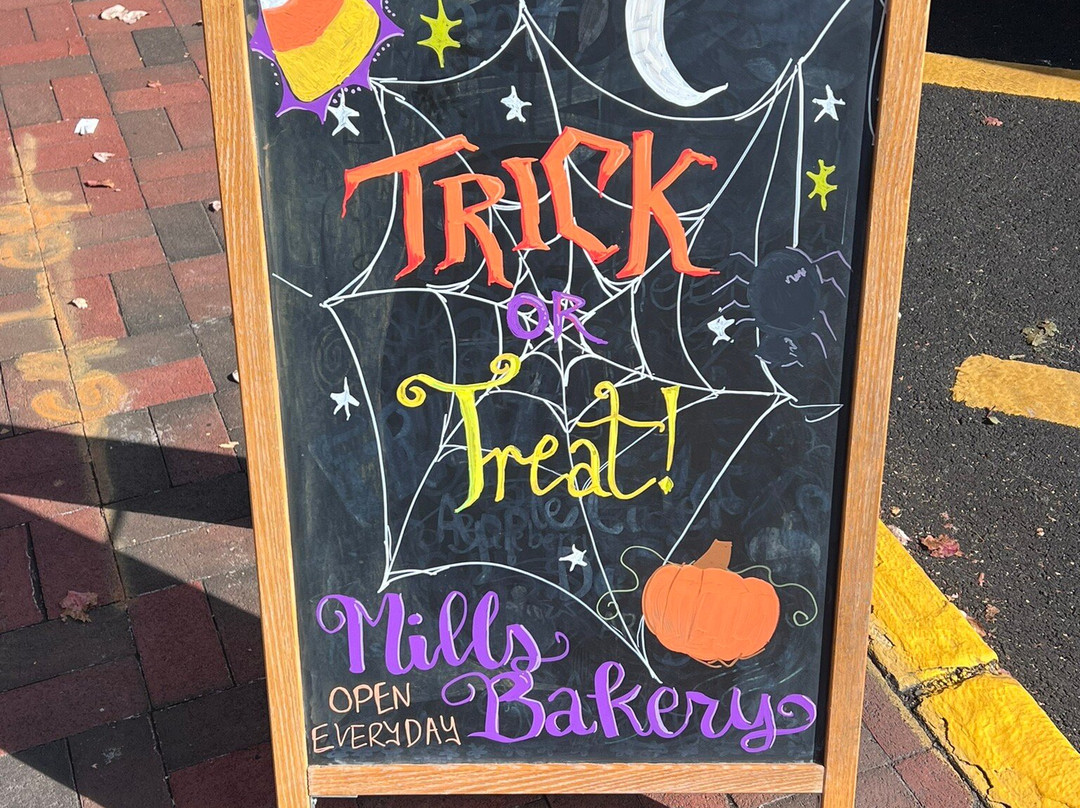 TRICK
OR
Treat!
Mills
Bakery
OPEN
EVERYDAY